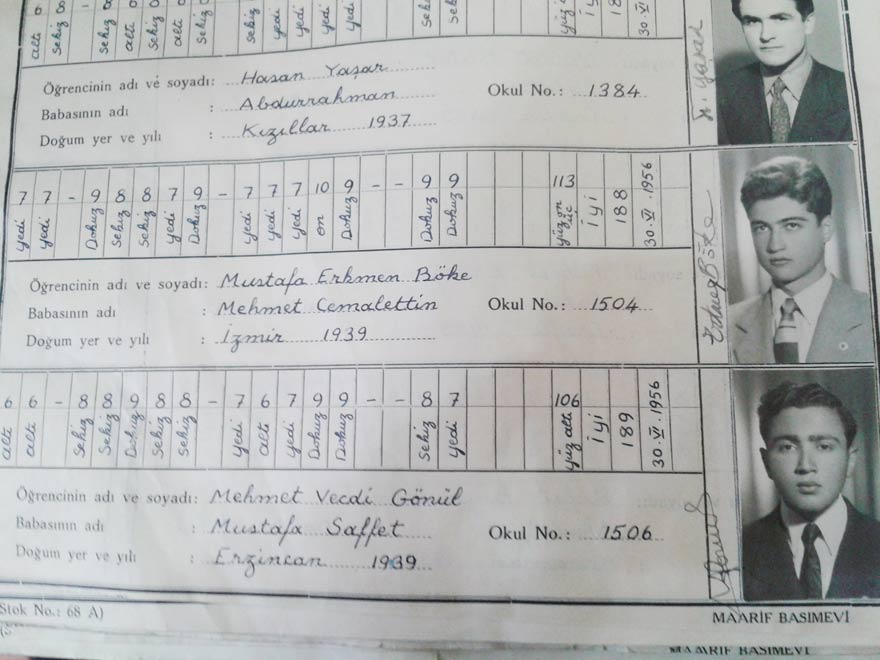 altı sekiz - sekiz altı sekiz altı sekiz sekiz yedi yedi yedi yedi
Öğrencinin adı ve soyadı: Hasan Yaşar
Babasının adı : Abdurrahman
Okul No.: 1384
Doğum yer ve yılı : Kızıllar 1937
7 7 - 9 8 8 7 9 - 7 7 7 10 9 - - 9 9 113 iyi 188 30.VI.1956
yedi yedi Dokuz sekiz sekiz yedi Dokuz yedi yedi yedi on Dokuz Dokuz Dokuz yüz on üç
Öğrencinin adı ve soyadı: Mustafa Erkmen Böke
Babasının adı : Mehmet Cemalettin
Okul No.: 1504
Doğum yer ve yılı : İzmir 1939
6 6 - 8 8 9 8 8 - 7 6 7 9 9 - - 8 7 106 iyi 189 30.VI.1956
altı altı sekiz sekiz Dokuz sekiz sekiz yedi altı yedi Dokuz Dokuz sekiz yedi yüz altı
Öğrencinin adı ve soyadı: Mehmet Vecdi Gönül
Babasının adı : Mustafa Saffet
Okul No.: 1506
Doğum yer ve yılı : Erzincan 1939
Stok No.: 68 A)
MAARİF BASIMEVİ
MAARİF BASIMEVİ